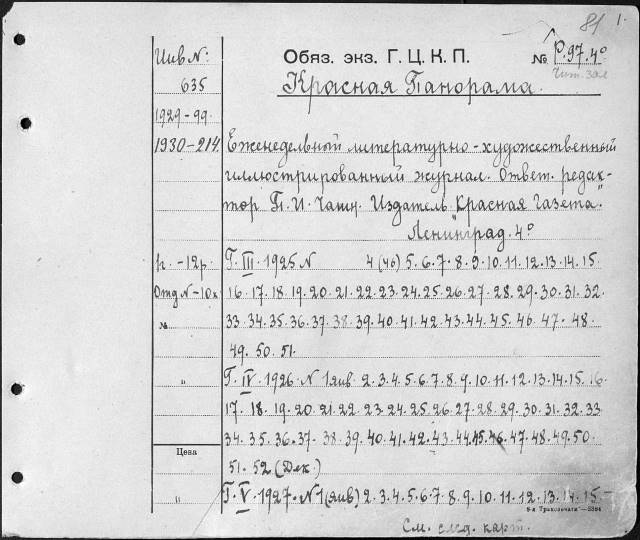 81 1.
Инв №: Обяз. экз. Г. Ц. К. П. № Р. 97. 4º
Чит. зал
635 Красная Панорама.
1929-99.
1930-214. Еженедельный литературно-художественный
иллюстрированный журнал. Ответ. редак-
тор П. И. Чагин. Издатель "Красная газета".
Ленинград. 4º
г. -12р. Г. III. 1925 N 4 (46) 5. 6. 7. 8. 9. 10. 11. 12. 13. 14. 15.
Отд N-10к 16. 17. 18. 19. 20. 21. 22. 23. 24. 25. 26. 27. 28. 29. 30. 31. 32
№ 33. 34. 35. 36. 37. 38. 39. 40. 41. 42. 43. 44. 45. 46. 47. 48.
49. 50. 51.
" Г. IV. 1926. N 1 янв. 2. 3. 4. 5. 6. 7. 8. 9. 10. 11. 12. 13. 14. 15. 16.
17. 18. 19. 20. 21. 22. 23. 24. 25. 26. 27. 28. 29. 30. 31. 32. 33
34. 35. 36. 37. 38. 39. 40. 41. 42. 43. 44. 45. 46. 47. 48. 49. 50.
Цена
51. 52 (Дек.)
" Г. V. 1927. N 1 (янв) 2. 3. 4. 5. 6. 7. 8. 9. 10. 11. 12. 13. 14. 15-
См. след. карт.